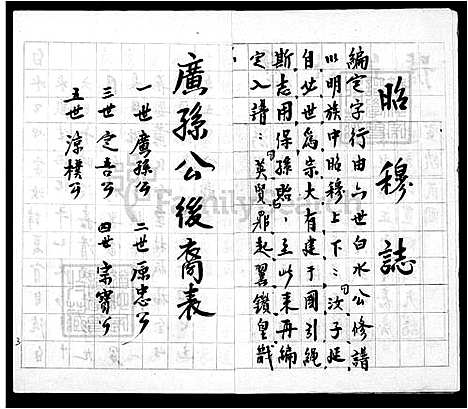 昭穆誌
編定字行由六世白水公修譜
以明族中昭穆上下:汝子廷
自必世為宗大有建于國引繩
斯志用保孫貽,至此來再編
定入譜:英賢鼎起翼鑽皇
廣孫公後裔表
一世廣孫公 二世原忠公
三世定吾公 四世宗寶公
五世淳樸公
3
FamilySearch